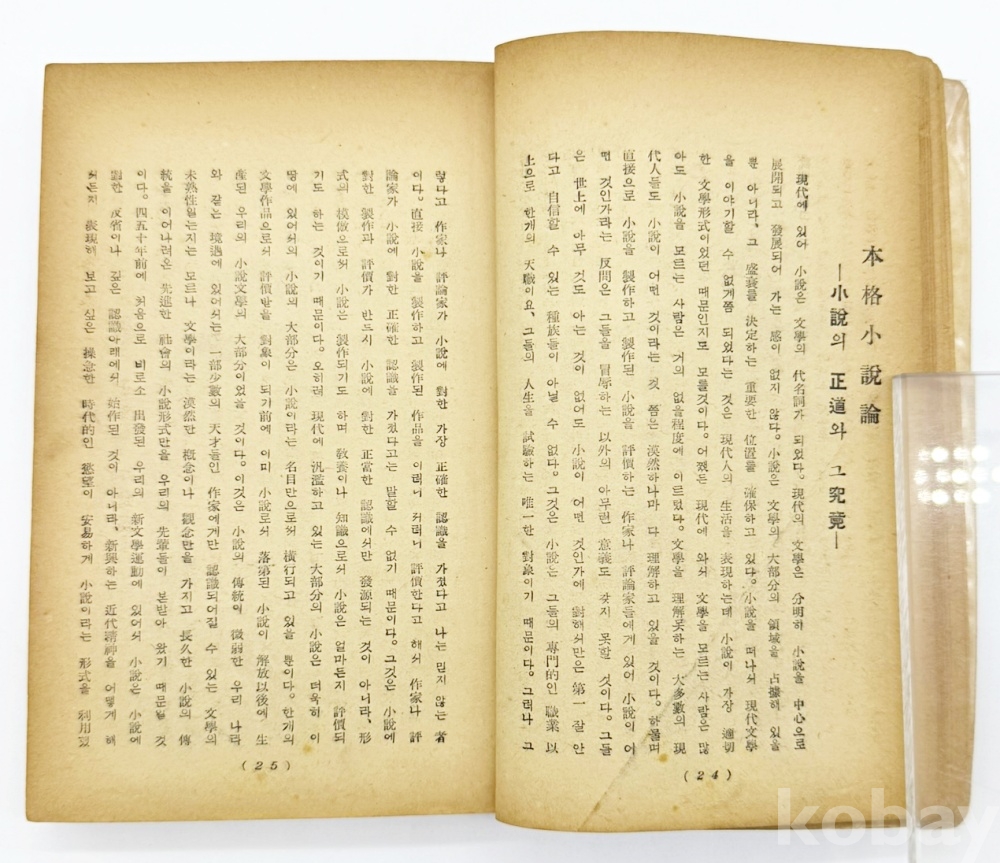 本格小說論
―小說의 正道와 그 究竟―
現代에 있어 小說은 文學의 代名詞가 되었다. 現代의 文學은 分明히 小說을 中心으로
展開되고 發展되어 가는 感이 없지 않다. 小說은 文學의 大部分의 領域을 占據해 있을
뿐 아니라, 그 盛衰를 決定하는 重要한 位置를 確保하고 있다. 小說을 떠나서 現代文學
을 이야기할 수 없게쯤 되었다는 것은 現代人의 生活을 表現하는데 小說이 가장 適切
한 文學形式이었던 때문인지도 모를것이다. 어쨌든 現代에 와서 文學을 모르는 사람은 많
아도 小說을 모르는 사람은 거의 없을程度에 이르렀다. 文學을 理解못하는 大多數의 現
代人들도 小說이 어떤 것이라는 것 쯤은 漠然하나마 다 理解하고 있을 것이다. 하물며
直接으로 小說을 製作하고 製作된 小說을 評價하는 作家나 評論家들에게 있어 小說이 어
떤 것인가라는 反問은 그들을 冒辱하는 以外의 아무런 意義도 갖지 못할 것이다. 그들
은 世上에 아무 것도 아는 것이 없어도 小說이 어떤 것인가에 對해서만은 第一 잘 안
다고 自信할 수 있는 種族들이 아닐 수 없다. 그것은 小說는 그들의 專門的인 職業 以
上으로 한개의 天職이요, 그들의 人生을 試驗하는 唯一한 對象이기 때문이다. 그러나 그
(24)
렇다고 作家나 評論家가 小說에 對한 가장 正確한 認識을 가졌다고 나는 믿지 않는 者
이다. 直接 小說을 製作하고 製作된 作品을 이러니 저러니 評價한다고 해서 作家나 評
論家가 小說에 對한 正確한 認識을 가졌다고는 말할 수 없기 때문이다. 그것은 小說에
對한 製作과 評價가 반드시 小說에 對한 正當한 認識에서만 發源되는 것이 아니라, 形
式의 模倣으로서 小說은 製作되기도 하며 敎養이나 知識으로서 小說은 얼마든지 評價되
기도 하는 것이기 때문이다. 오히려 現代에 汎濫하고 있는 大部分의 小說은 더욱히 이
땅에 있어서의 小說의 大部分은 小說이라는 名目만으로서 橫行되고 있을 뿐이다. 한개의
文學作品으로서 評價받을 對象이 되기前에 이미 小說로서 落第된 小說이 解放以後에 生
產된 우리의 小說文學의 大部分이었을 것이다. 이것은 小說의 傳統이 微弱한 우리 나라
와 같은 境遇에 있어서는 一部少數의 天才들인 作家에게만 認識되어질 수 있는 文學의
未熟性일른지는 모르나 文學이라는 漠然한 槪念이나 觀念만을 가지고 長久한 小說의 傳
統을 이어나려온 先進한 社會의 小說形式만을 우리의 先輩들이 본받아 왔기 때문일 것
이다. 四五十年前에 처음으로 비로소 出發된 우리의 新文學運動에 있어서 小說은 小說에
對한 反省이나 깊은 認識아래에서 始作된 것이 아니라, 新興하는 近代精神을 어떻게 해
서든지 表現해 보고 싶은 操急한 時代的인 慾望이 安易하게 小說이라는 形式을 利用했
(25)
kobay